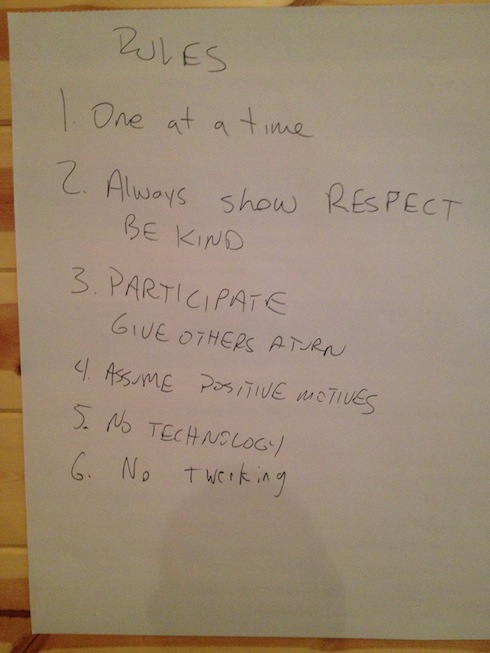 RULES
1. One at a time
2. Always show RESPECT
BE KIND
3. PARTICIPATE
GIVE OTHERS A TURN
4. ASSUME POSITIVE MOTIVES
5. NO TECHNOLOGY
6. No twerking